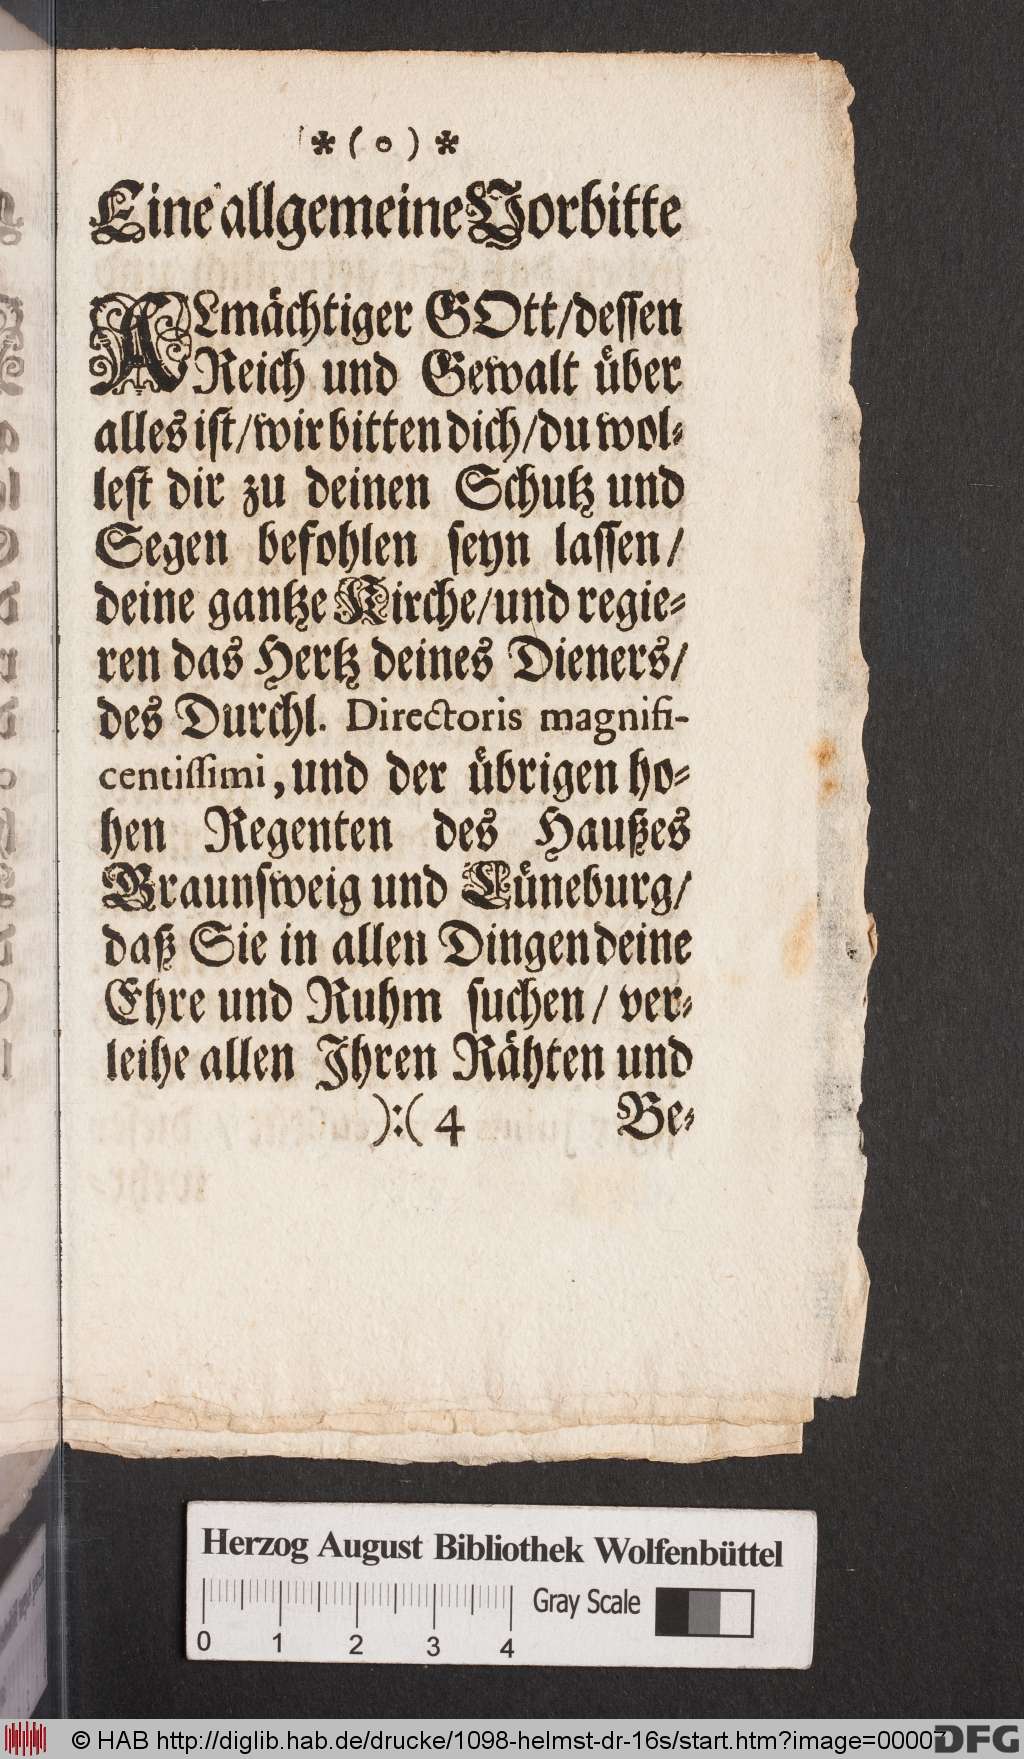 * ( o ) *
Eine allgemeine Vorbitte
ALmächtiger GOtt/dessen
Reich und Gewalt über
alles ist/wir bitten dich/du wol-
lest dir zu deinen Schutz und
Segen befohlen seyn lassen/
deine gantze Kirche/und regie-
ren das Hertz deines Dieners/
des Durchl. Directoris magnifi-
centissimi, und der übrigen ho-
hen Regenten des Haußes
Braunsweig und Lüneburg/
daß Sie in allen Dingen deine
Ehre und Ruhm suchen/ ver-
leihe allen Ihren Rähten und
):( 4 Be-
Herzog August Bibliothek Wolfenbüttel
Gray Scale
0 1 2 3 4
© HAB http://diglib.hab.de/drucke/1098-helmst-dr-16s/start.htm?image=00007
DFG